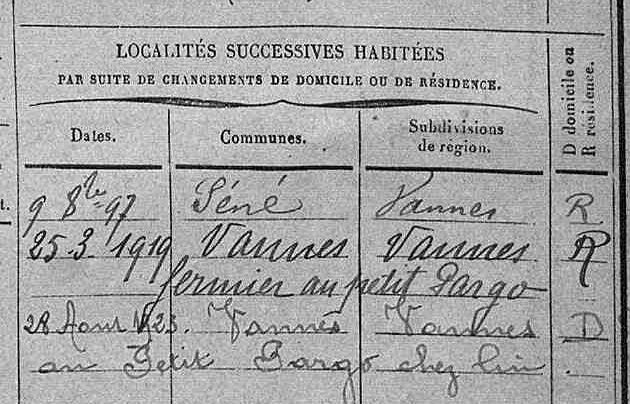 LOCALITÉS SUCCESSIVES HABITÉES
PAR SUITE DE CHANGEMENTS DE DOMICILE OU DE RÉSIDENCE.
D domicile ou
R résidence.
Dates. Communes. Subdivisions
de région.
9 8bre 97 Séné Vannes R
25.3.1919 Vannes Vannes R
fermier au petit Pargo
28 Aout 1923. Vannes Vannes D
au Petit Pargo chez lui